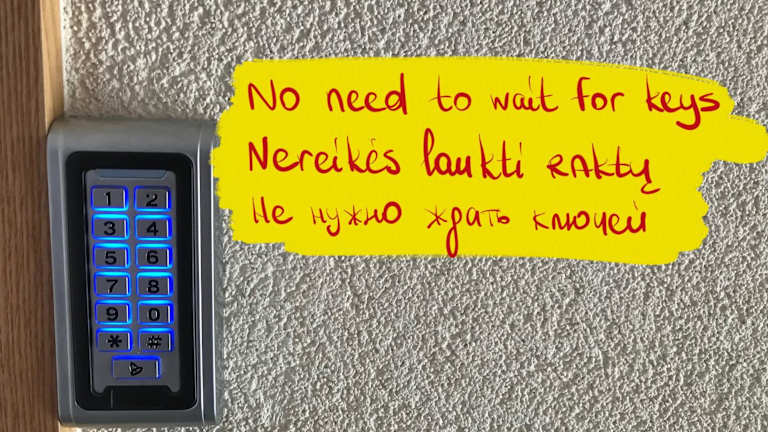 No need to wait for keys
Nereikės laukti raktų
Не нужно ждать ключей
1 2
3 4
5 6
7 8
9 0
* #